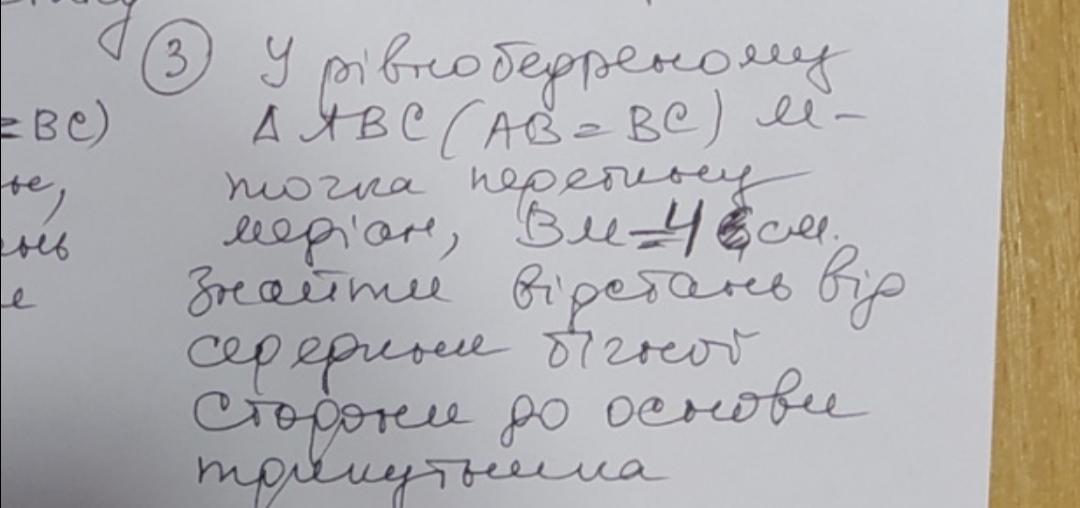 ③ У рівнобедреному
=BC) Δ ABC (AB = BC) М -
не, точка перетину
ень медіан, ВМ = 4 см.
е Знайти відстань від
середини бічної
сторони до основи
трикутника